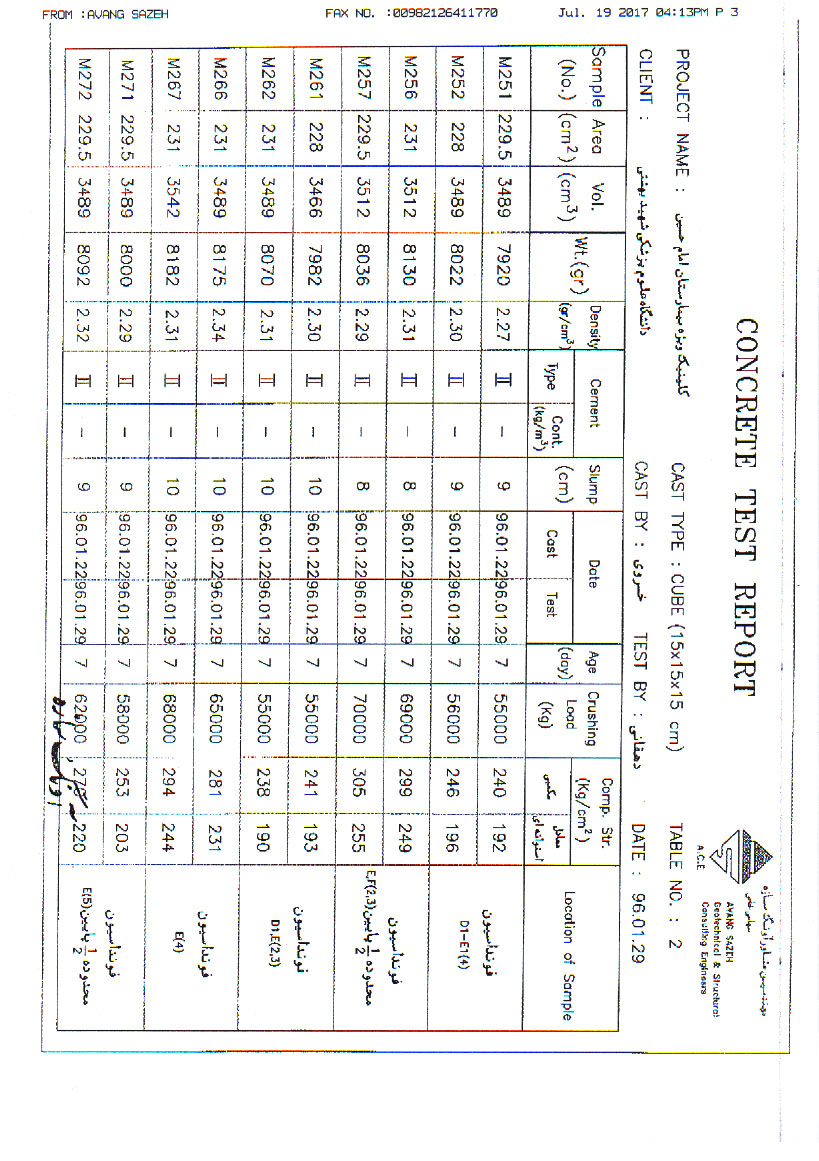 FROM :AVANG SAZEH FAX NO. :00982126411770 Jul. 19 2017 04:13PM P 3
CONCRETE TEST REPORT
مهندسین مشاور آونگ سازه
سهامی خاص
AVANG SAZEH
Geotechnical & Structural
Consulting Engineers
A.C.E
PROJECT NAME : کلینیک ویژه بیمارستان امام حسین CAST TYPE : CUBE (15x15x15 cm) TABLE NO. : 2
CLIENT : دانشگاه علوم پزشکی شهید بهشتی CAST BY : خسروی TEST BY : دهقانی DATE : 96.01.29
Sample (No.) Area (cm2) Vol. (cm3) Wt.(gr) Density (gr/cm3) Cement Type Cont. (kg/m3) Slump (cm) Date Cast Test Age (day) Crushing Load (Kg) Comp. Str. (Kg/cm2) مکعبی معادل استوانه ای Location of Sample
M251 229.5 3489 7920 2.27 II – 9 96.01.22 96.01.29 7 55000 240 192 فونداسیون
M252 228 3489 8022 2.30 II – 9 96.01.22 96.01.29 7 56000 246 196 D1-E1(4)
M256 231 3512 8130 2.31 II – 8 96.01.22 96.01.29 7 69000 299 249 فونداسیون
M257 229.5 3512 8036 2.29 II – 8 96.01.22 96.01.29 7 70000 305 255 محدوده 1/2 پایین E,F(2,3)
M261 228 3466 7982 2.30 II – 10 96.01.22 96.01.29 7 55000 241 193 فونداسیون
M262 231 3489 8070 2.31 II – 10 96.01.22 96.01.29 7 55000 238 190 D1,E(2,3)
M266 231 3489 8175 2.34 II – 10 96.01.22 96.01.29 7 65000 281 231 فونداسیون
M267 231 3542 8182 2.31 II – 10 96.01.22 96.01.29 7 68000 294 244 E(4)
M271 229.5 3489 8000 2.29 II – 9 96.01.22 96.01.29 7 58000 253 203 فونداسیون
M272 229.5 3489 8092 2.32 II – 9 96.01.22 96.01.29 7 62000 220 محدوده 1/2 پایین E(5)